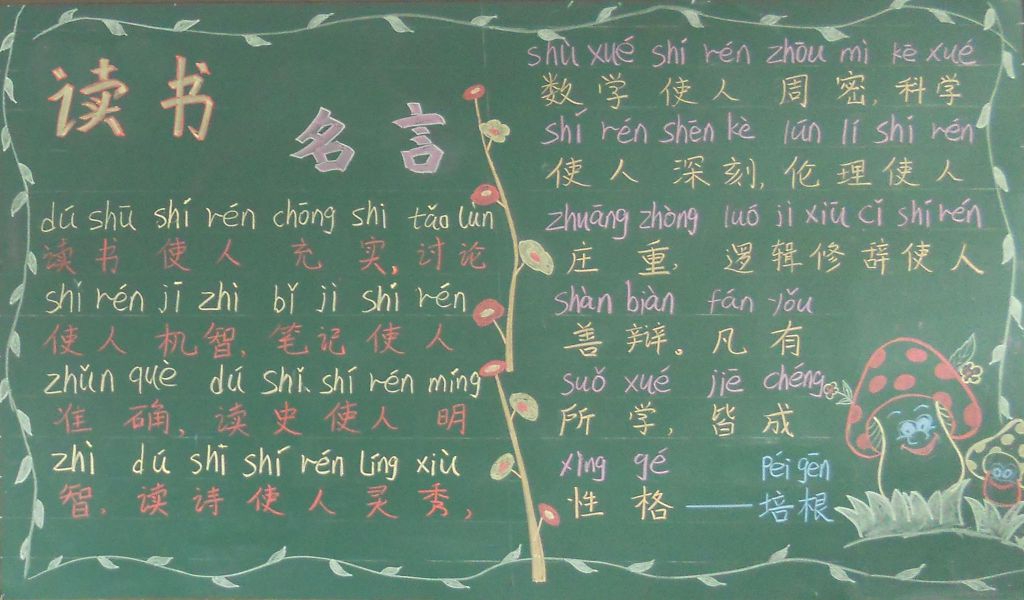 读书
名言
dú shū shí rén chōng shi tǎo lùn
读书 使人 充实,讨论
shí rén jī zhì bǐ jì shí rén
使人机智,笔记使人
zhǔn què dú shǐ shí rén míng
准确,读史使人明
zhì dú shī shí rén líng xiù
智,读诗使人灵秀,
shù xué shí rén zhōu mì kē xué
数学使人周密,科学
shí rén shēn kè lún lí shí rén
使人深刻,伦理使人
zhuāng zhòng luó jì xiū cí shí rén
庄重,逻辑修辞使人
shàn biàn fán yǒu
善辩。凡有
suǒ xué jiē chéng
所学,皆成
xìng gé péi gēn
性格——培根